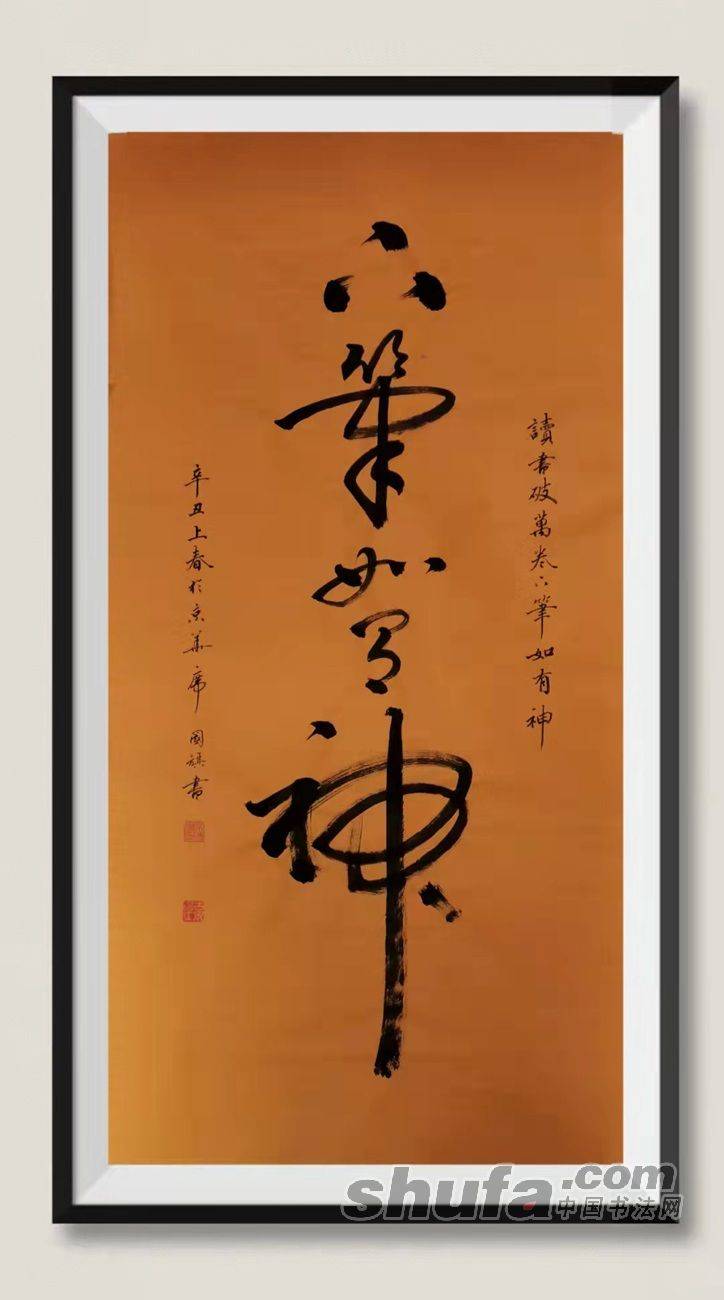 下筆如有神
讀書破萬卷下筆如有神
辛丑上春於京華席國旗書
shufa.com
中国书法网